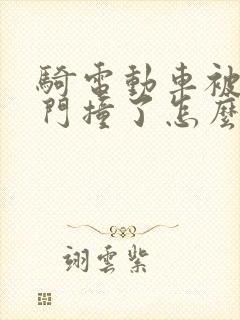 騎電動車被
門撞了怎麼
翊雲紫